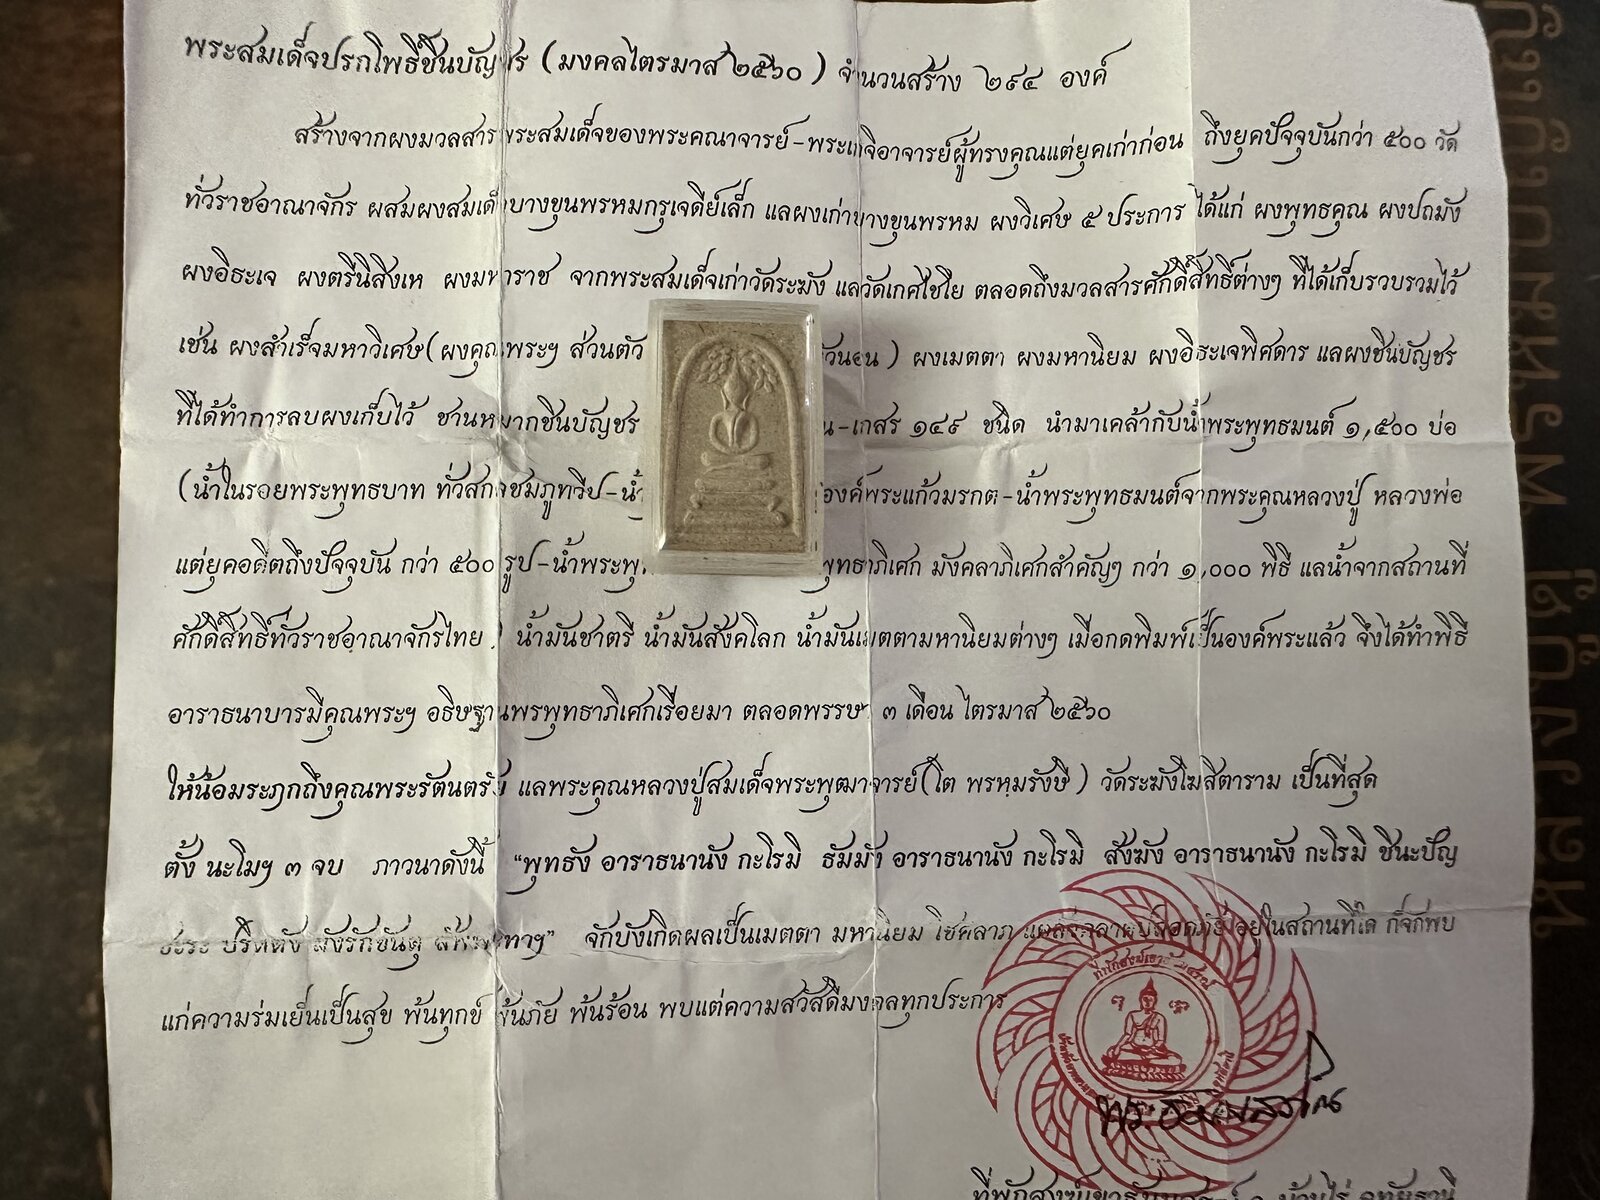 พระสมเด็จปรกโพธิ์ชินบัญชร (มงคลไตรมาส ๒๕๖๐) จำนวนสร้าง ๒๙๔ องค์
สร้างจากผงมวลสารพระสมเด็จของพระคณาจารย์-พระเกจิอาจารย์ผู้ทรงคุณแต่ยุคเก่าก่อน ถึงยุคปัจจุบันกว่า ๕๐๐ วัด
ทั่วราชอาณาจักร ผสมผงสมเด็จบางขุนพรหมกรุเจดีย์เล็ก แลผงเก่าบางขุนพรหม ผงวิเศษ ๕ ประการ ได้แก่ ผงพุทธคุณ ผงปถมัง
ผงอิธะเจ ผงตรีนิสิงเห ผงมหาราช จากพระสมเด็จเก่าวัดระฆัง แลวัดเกศไชโย ตลอดถึงมวลสารศักดิ์สิทธิ์ต่างๆ ที่ได้เก็บรวบรวมไว้
เช่น ผงสำเร็จมหาวิเศษ(ผงคุณพระฯ ส่วนตัว วนอน) ผงเมตตา ผงมหานิยม ผงอิธะเจพิศดาร แลผงชินบัญชร
ที่ได้ทำการลบผงเก็บไว้ ชานหมากชินบัญชร น-เกสร ๑๔๙ ชนิด นำมาเคล้ากับน้ำพระพุทธมนต์ ๑,๕๐๐ บ่อ
(น้ำในรอยพระพุทธบาท ทั่วสกลชมภูทวีป-น้ำ องค์พระแก้วมรกต-น้ำพระพุทธมนต์จากพระคุณหลวงปู่ หลวงพ่อ
แต่ยุคอดีตถึงปัจจุบัน กว่า ๕๐๐ รูป-น้ำพระพุ พุทธาภิเศก มังคลาภิเศกสำคัญๆ กว่า ๑,๐๐๐ พิธี แลน้ำจากสถานที่
ศักดิ์สิทธิ์ทั่วราชอาณาจักรไทย ) น้ำมันชาตรี น้ำมันสังคโลก น้ำมันเมตตามหานิยมต่างๆ เมื่อกดพิมพ์เป็นองค์พระแล้ว จึงได้ทำพิธี
อาราธนาบารมีคุณพระฯ อธิษฐานพรพุทธาภิเศกเรื่อยมา ตลอดพรรษา ๓ เดือน ไตรมาส ๒๕๖๐
ให้น้อมระฦกถึงคุณพระรัตนตรัย แลพระคุณหลวงปู่สมเด็จพระพุฒาจารย์(โต พรหฺมรังษี) วัดระฆังโฆสิตาราม เป็นที่สุด
ตั้ง นะโมฯ ๓ จบ ภาวนาดังนี้ "พุทธัง อาราธนานัง กะโรมิ ธัมมัง อาราธนานัง กะโรมิ สังฆัง อาราธนานัง กะโรมิ ชินะปัญ
ชะระ ปริตตัง มังรักขันตุ สัพพะทาฯ" จักบังเกิดผลเป็นเมตตา มหานิยม โชคลาภ อยู่ในสถานที่ใด ก็จักพบ
แก่ความร่มเย็นเป็นสุข พ้นทุกข์ พ้นภัย พ้นร้อน พบแต่ความสวัสดีมงคลทุกประการ